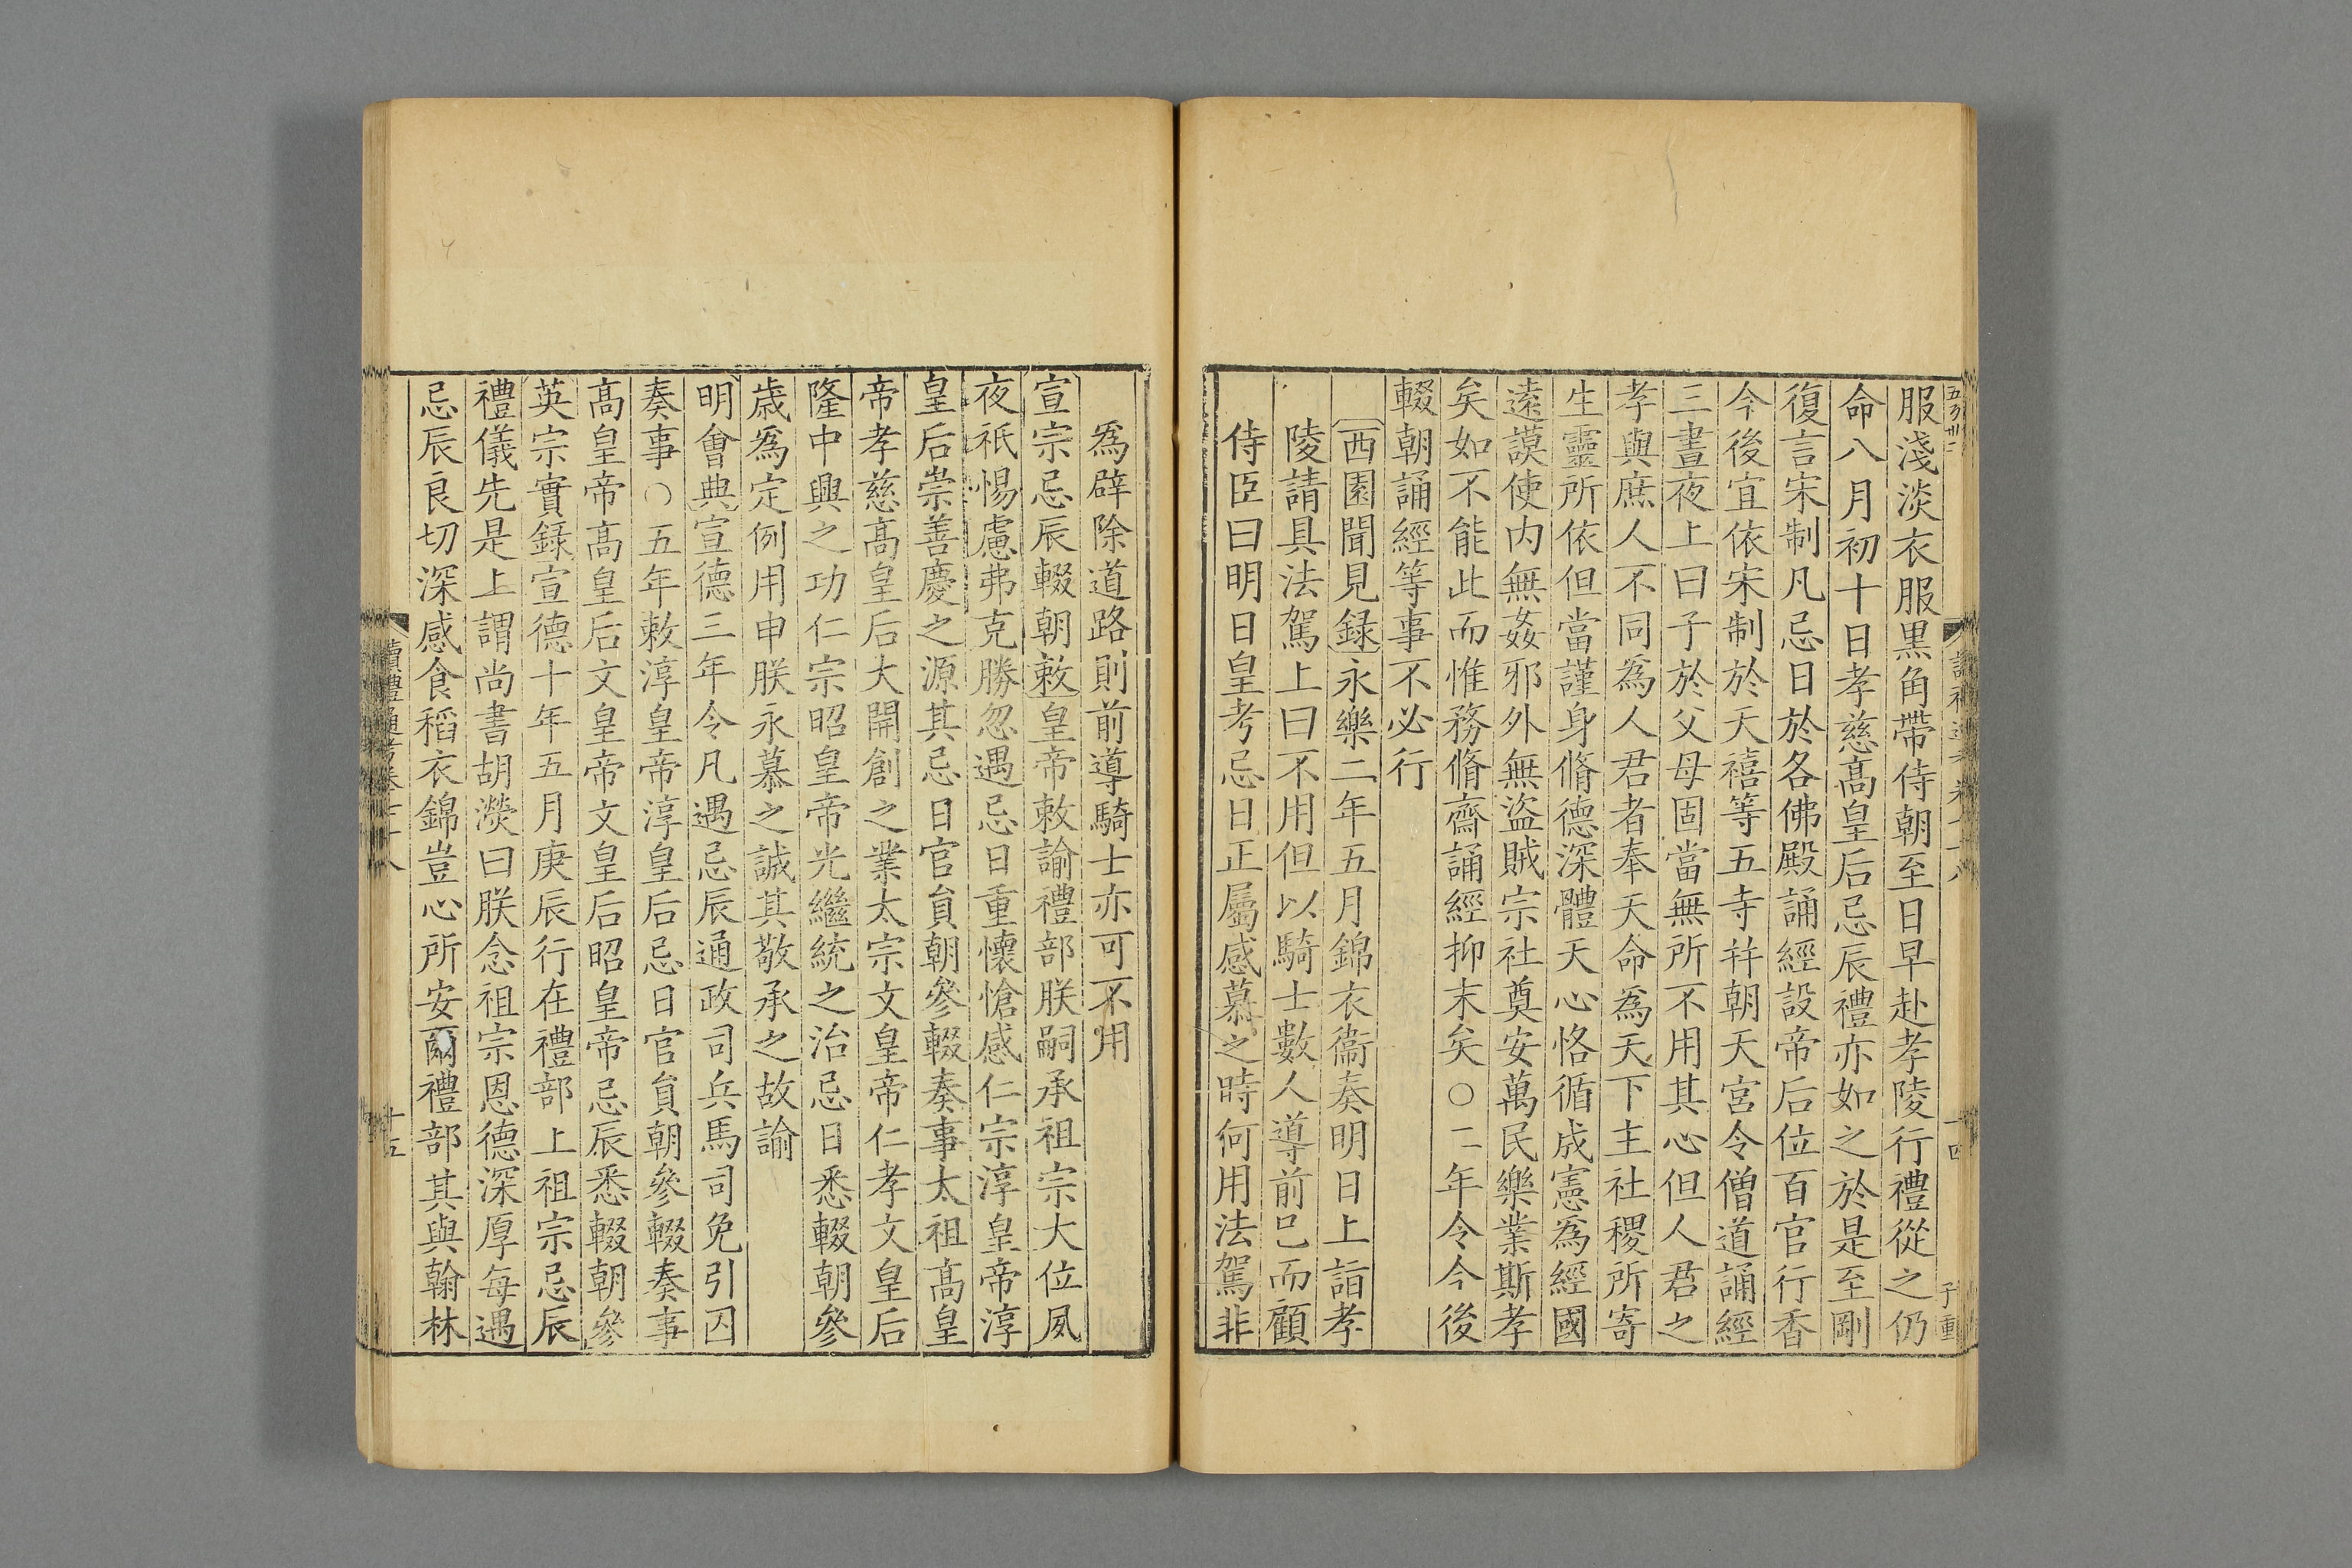 服淺淡衣服黒角帶侍朝至日早赴孝陵行禮從之仍
命八月初十日孝慈髙皇后忌辰禮亦如之於是至剛
復言宋制凡忌日於各佛殿誦經設帝后位百官行香
今後宜依宋制於天禧等五寺幷朝天宮令僧道誦經
三晝夜上曰子於父母固當無所不用其心但人君之
孝與庶人不同爲人君者奉天命爲天下主社稷所寄
生靈所依但當謹身脩德深體天心恪循成憲爲經國
遠謨使内無姦邪外無盜賊宗社奠安萬民樂業斯孝
矣如不能此而惟務脩齋誦經抑末矣○二年令今後
輟朝誦經等事不必行
西園聞見録永樂二年五月錦衣衞奏明日上詣孝
陵請具法駕上曰不用但以騎士數人導前已而顧
侍臣曰明日皇考忌日正屬感慕之時何用法駕非
爲辟除道路則前導騎士亦可不用
宣宗忌辰輟朝敕皇帝敕諭禮部朕嗣承祖宗大位夙
夜祇惕慮弗克勝忽遇忌日重懷愴感仁宗淳皇帝淳
皇后崇善慶之源其忌日官員朝參輟奏事太祖髙皇
帝孝慈髙皇后大開創之業太宗文皇帝仁孝文皇后
隆中興之功仁宗昭皇帝光繼統之治忌日悉輟朝參
歳爲定例用申朕永慕之誠其敬承之故諭
明會典宣德三年令凡遇忌辰通政司兵馬司免引囚
奏事○五年敕淳皇帝淳皇后忌日官員朝參輟奏事
髙皇帝髙皇后文皇帝文皇后昭皇帝忌辰悉輟朝參
英宗實録宣德十年五月庚辰行在禮部上祖宗忌辰
禮儀先是上謂尚書胡濙曰朕念祖宗恩德深厚每遇
忌辰良切深感食稻衣錦豈心所安爾禮部其與翰林
讀禮通考卷七十八
十五